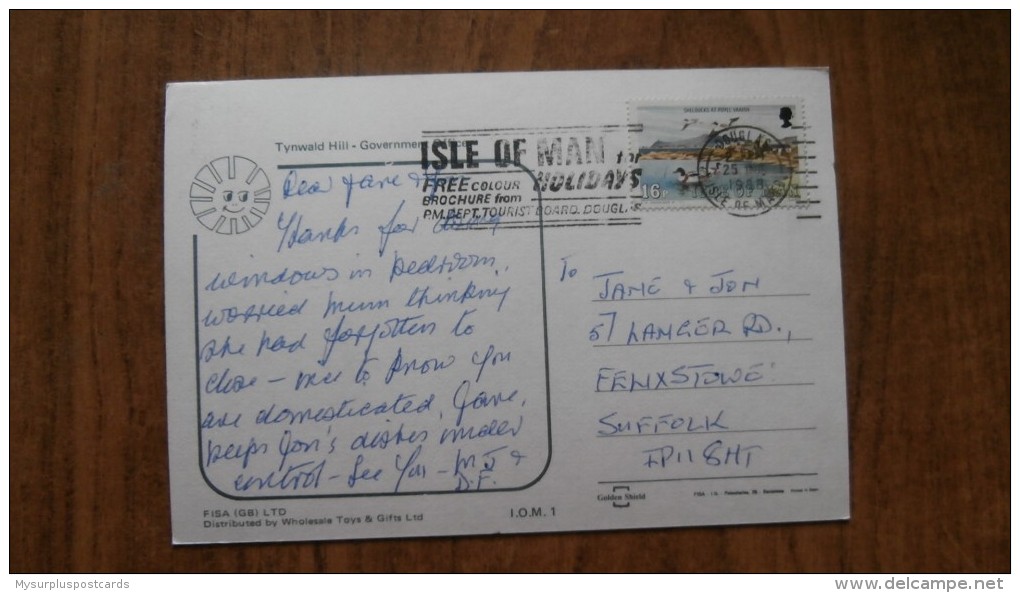 Tynwald Hill - Government Office
ISLE OF MAN for
HOLIDAYS
FREE COLOUR
BROCHURE from
P.M. DEPT. TOURIST BOARD. DOUGLAS
SHELDUCKS AT POYLL VAAISH
16P
DOUGLAS
25
1988
ISLE OF MAN
Dear Jane & Jon
Thanks for doing
windows in bedroom,
worried mum thinking
she had forgotten to
close - nice to know you
are domesticated, Jane,
keeps Jon's dishes under
control - See You - M J &
D.F.
To
JANE & JON
57 LANGER RD.,
FELIXSTOWE.
SUFFOLK
IP11 8HT
FISA (GB) LTD
Distributed by Wholesale Toys & Gifts Ltd
I.O.M. 1
Golden Shield
Mysurpluspostcards
delcampe.net